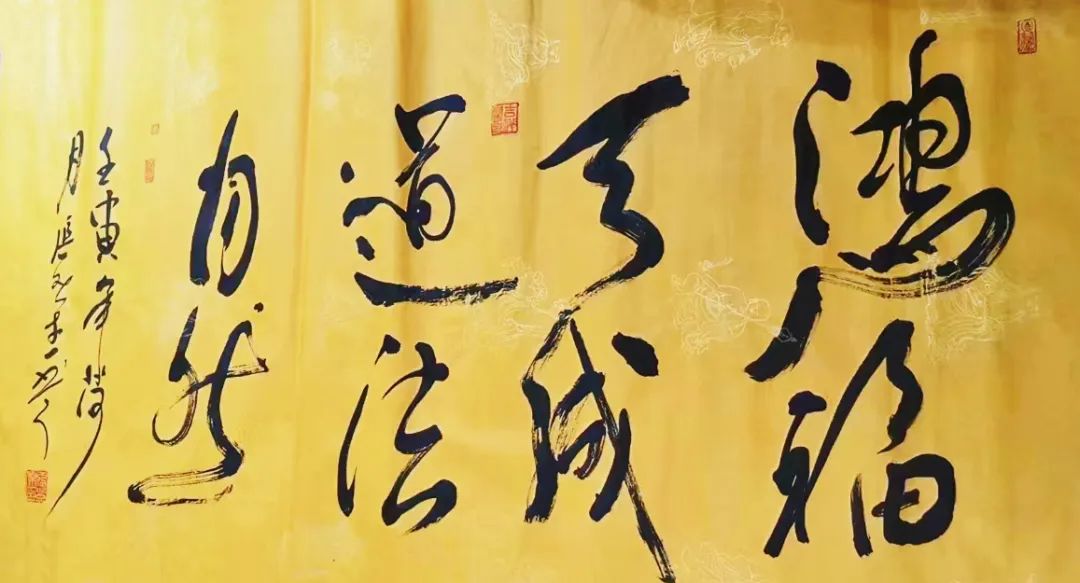 鸿福
天成
道法
自然
壬寅年荷
月